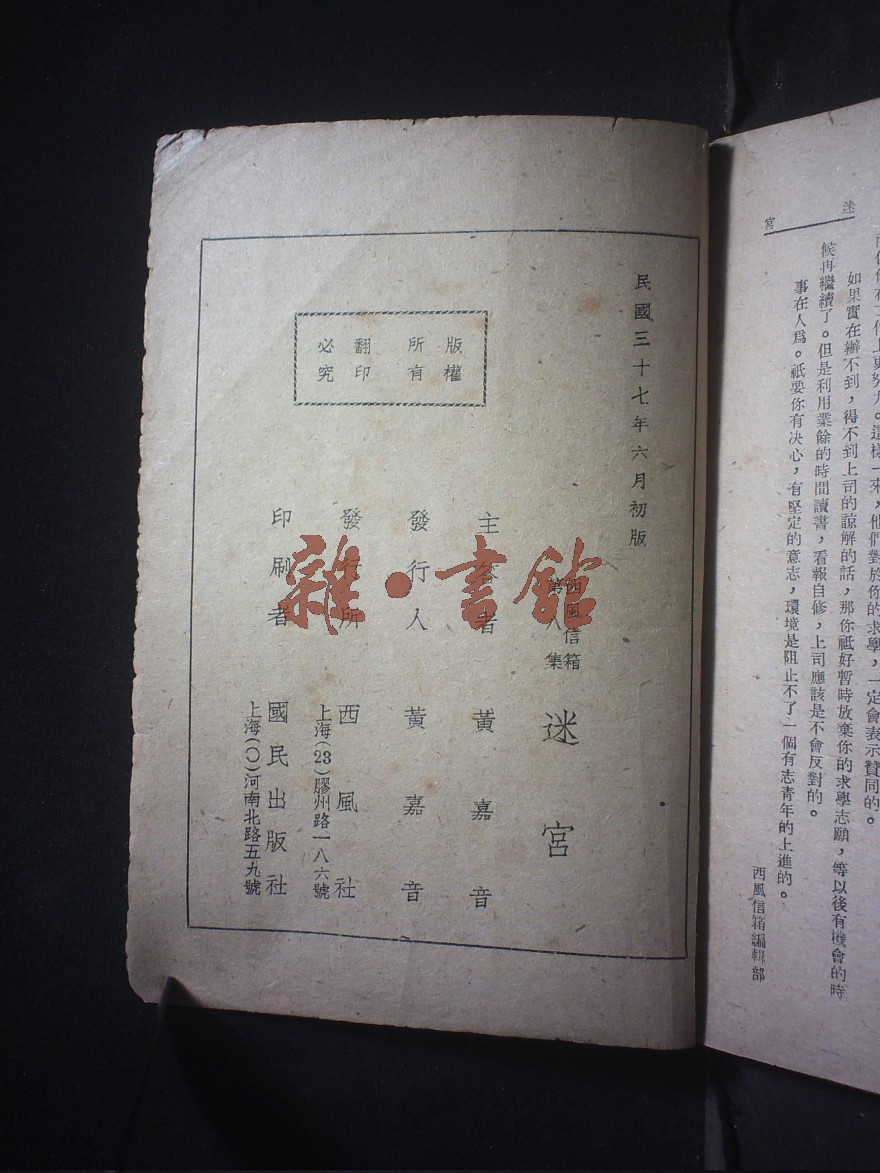 迷宮
工作上更努力。這樣一來，他們對於你的求學，一定會表示贊同的。
如果實在辦不到，得不到上司的諒解的話，那你祇好暫時放棄你的求學志願，等以後有機會的時
候再繼續了。但是利用業餘的時間讀書，看報自修，上司應該是不會反對的。
事在人爲。祇要你有決心，有堅定的意志，環境是阻止不了一個有志青年的上進的。
西風信箱編輯部
民國三十七年六月初版
西風信箱
第八集
迷宮
主答者 黃嘉音
發行人 黃嘉音
發行所 西風社
上海(23)膠州路一八六號
印刷者 國民出版社
上海(〇)河南北路五九號
版權
所有
翻印
必究
雜·書館